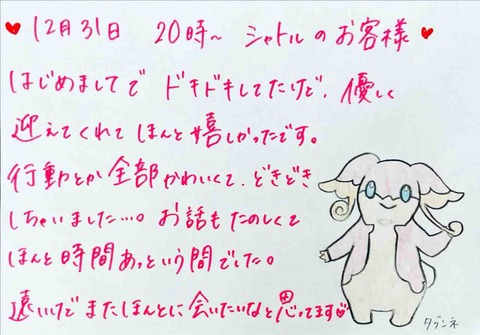 ♥12月31日 20時～ シャトルのお客様♥
はじめましてで ドキドキしてたけど、優しく
迎えてくれて ほんと嬉しかったです。
行動とか全部かわいくて、どきどき
しちゃいました…。お話もたのしくて
ほんと時間あっという間でした。
遠いけどまたほんとに会いたいなと思ってます♡
タブンネ